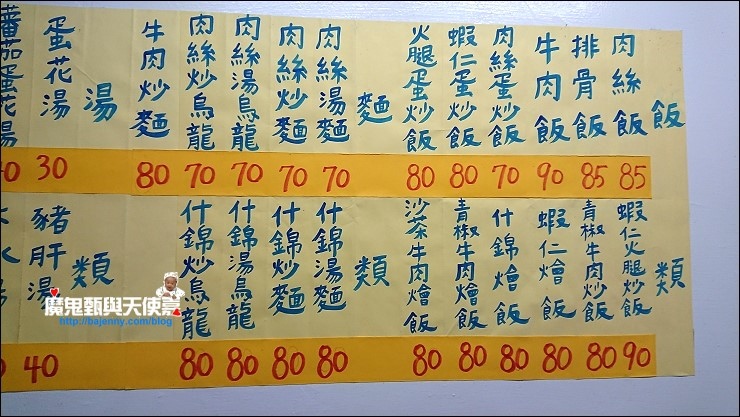 飯類
肉絲飯 85
排骨飯 85
牛肉飯 90
肉絲蛋炒飯 70
蝦仁蛋炒飯 80
火腿蛋炒飯 80
蝦仁火腿炒飯 90
青椒牛肉炒飯 80
蝦仁燴飯 80
什錦燴飯 80
青椒牛肉燴飯 80
沙茶牛肉燴飯 80
麵類
肉絲湯麵 70
肉絲炒麵 70
肉絲湯烏龍 70
肉絲炒烏龍 70
牛肉炒麵 80
什錦湯麵 80
什錦炒麵 80
什錦湯烏龍 80
什錦炒烏龍 80
湯類
蛋花湯 30
蕃茄蛋花湯
豬肝湯 40
魔鬼甄與天使嘉
http://bajenny.com/blog